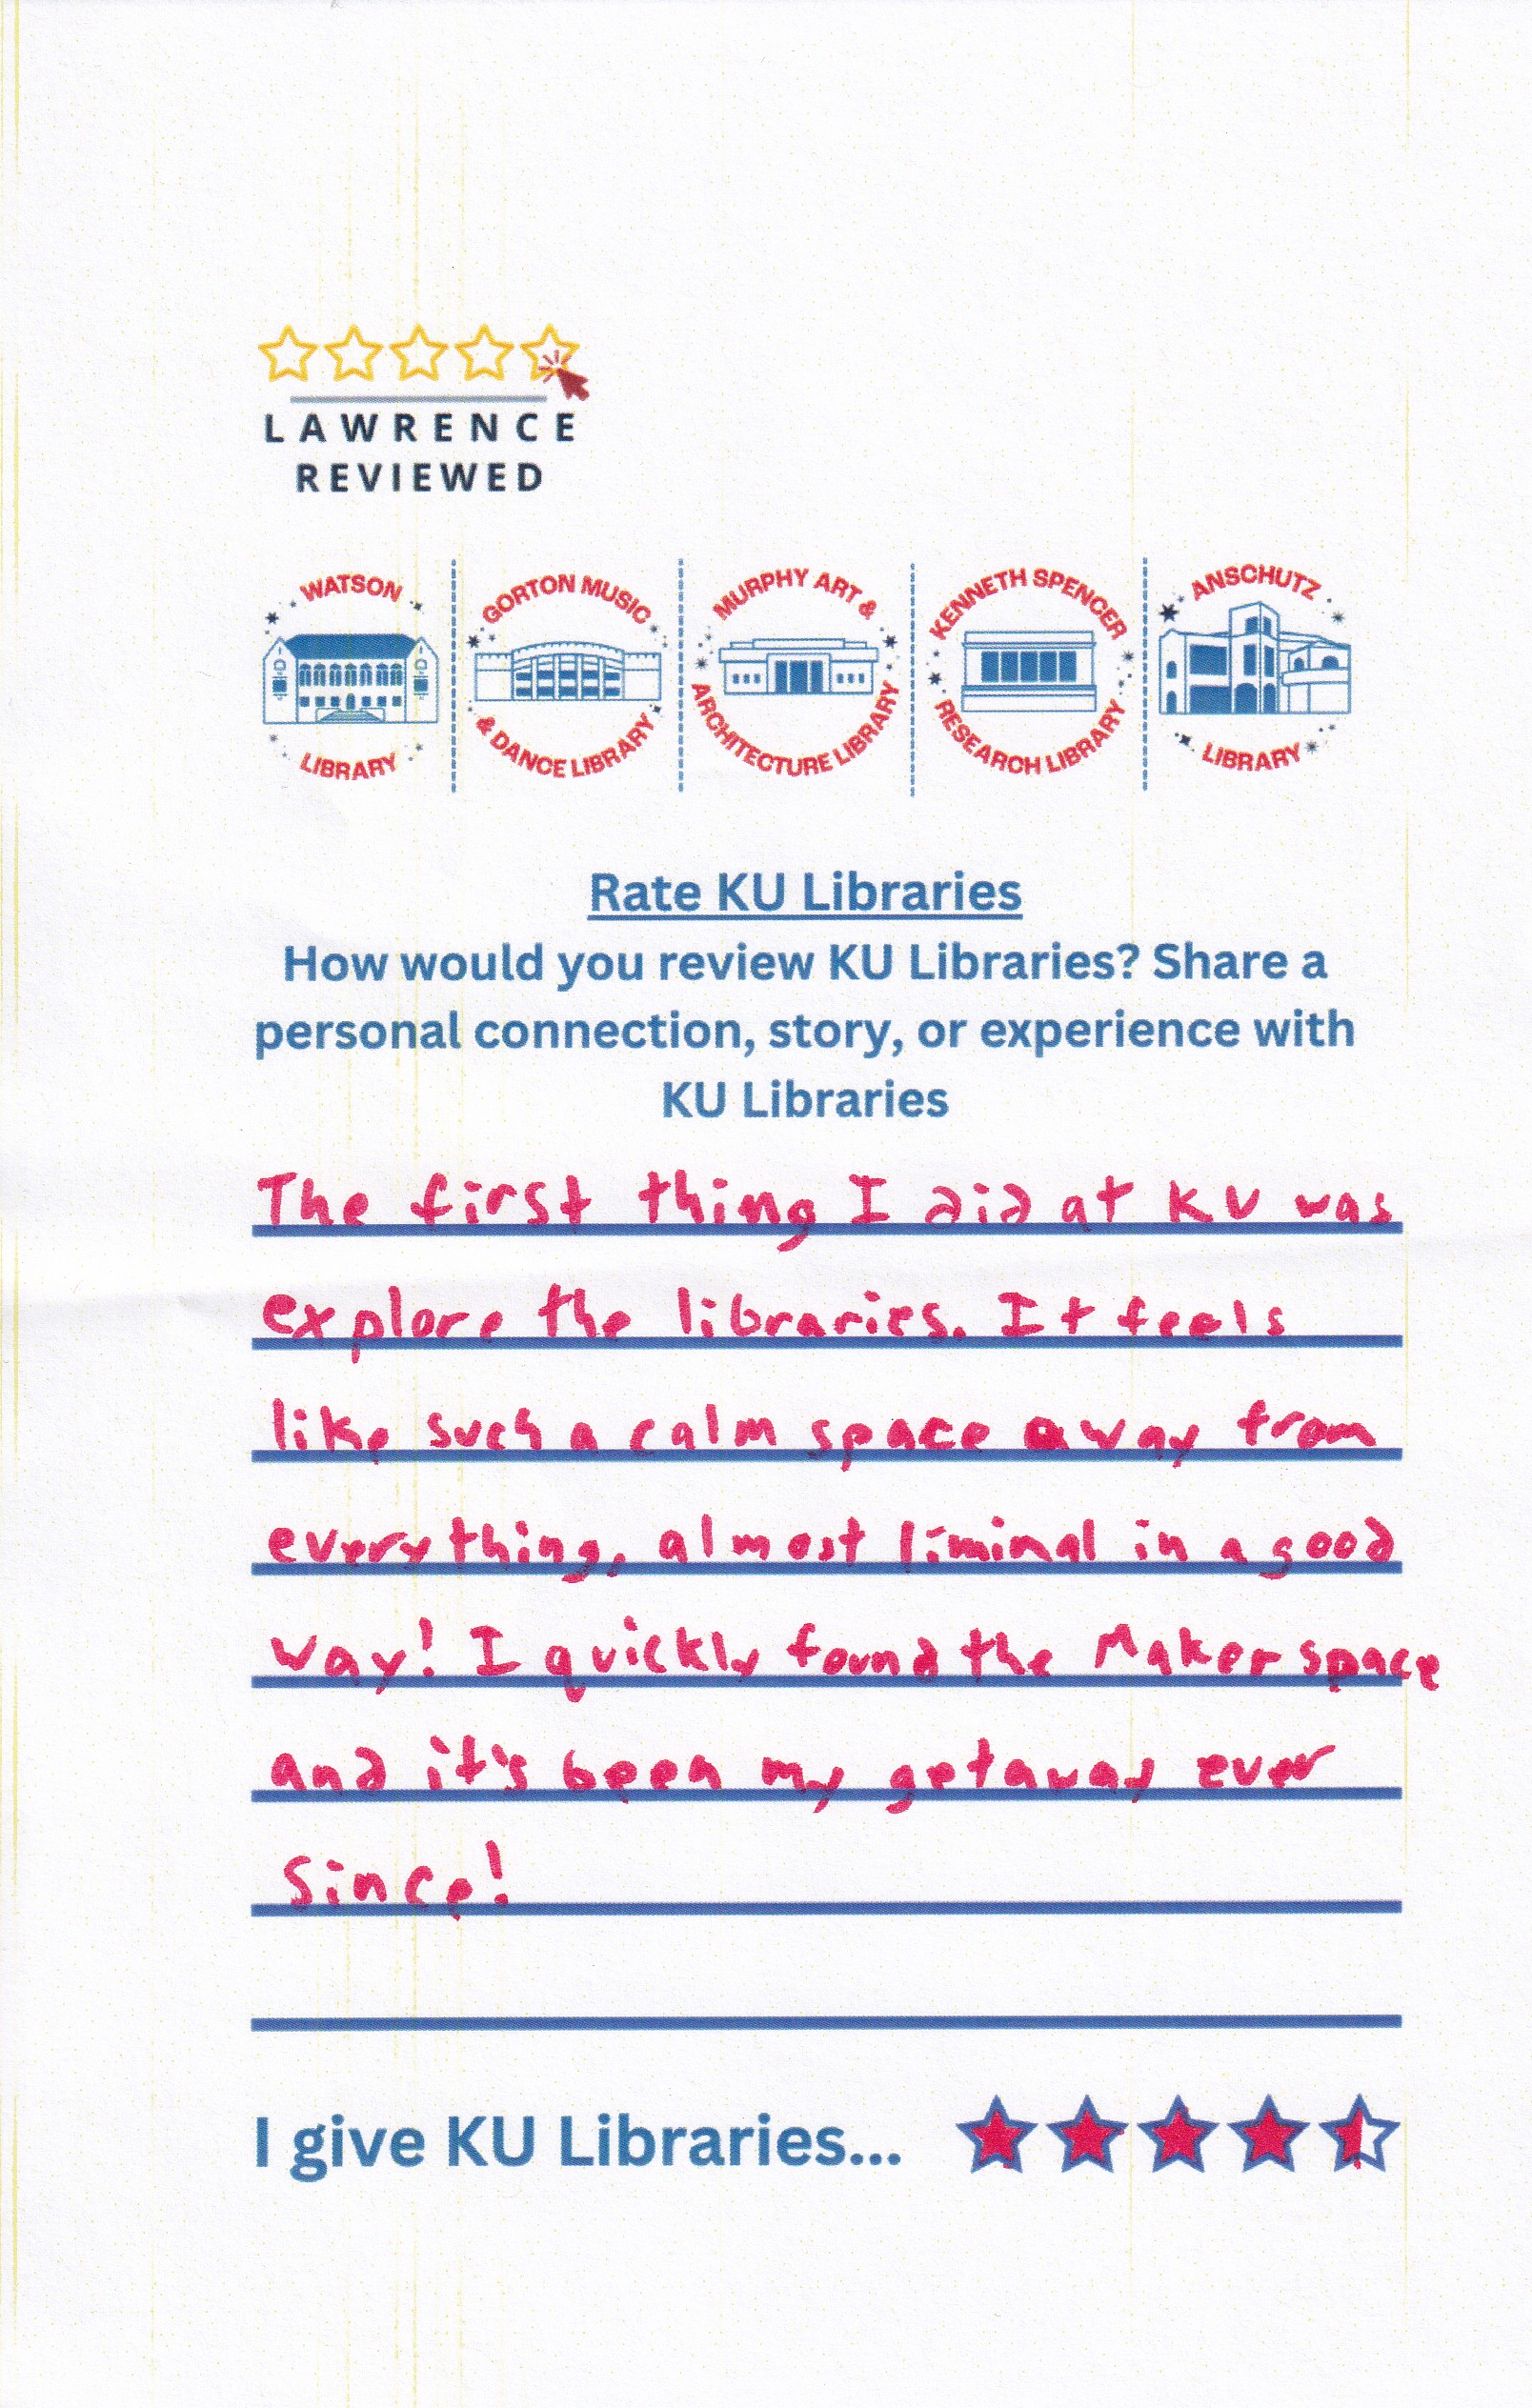 LAWRENCE
REVIEWED
WATSON LIBRARY
GORTON MUSIC & DANCE LIBRARY
MURPHY ART & ARCHITECTURE LIBRARY
KENNETH SPENCER RESEARCH LIBRARY
ANSCHUTZ LIBRARY
Rate KU Libraries
How would you review KU Libraries? Share a
personal connection, story, or experience with
KU Libraries
The first thing I did at KU was
explore the libraries. It feels
like such a calm space away from
everything, almost liminal in a good
way! I quickly found the Makerspace
and it's been my getaway ever
since!
I give KU Libraries...